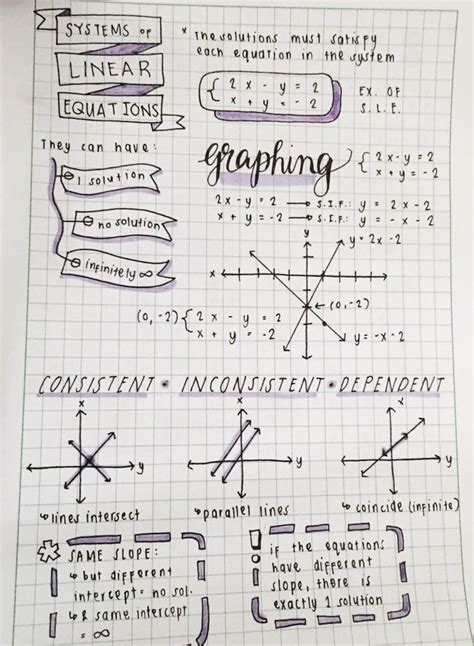 SYSTEMS OF
LINEAR
EQUATIONS
* The solutions must satisfy
each equation in the system
{ 2x - y = 2
x + y = -2
EX. OF
S.L.E.
They can have:
1 solution
no solution
infinitely ∞
graphing { 2x-y=2
x+y=-2
2x-y=2 → S.I.F.: y = 2x-2
x+y=-2 → S.I.F.: y = -x-2
y
y=2x-2
x
← (0,-2)
(0,-2) { 2x - y = 2
x + y = -2
y=-x-2
CONSISTENT • INCONSISTENT • DEPENDENT
x x x
y y y
↳ lines intersect
↳ parallel lines
↳ coincide (infinite)
SAME SLOPE:
↳ but different
intercept = no sol.
↳ & same intercept
= ∞
! if the equations
have different
slope, there is
exactly 1 solution